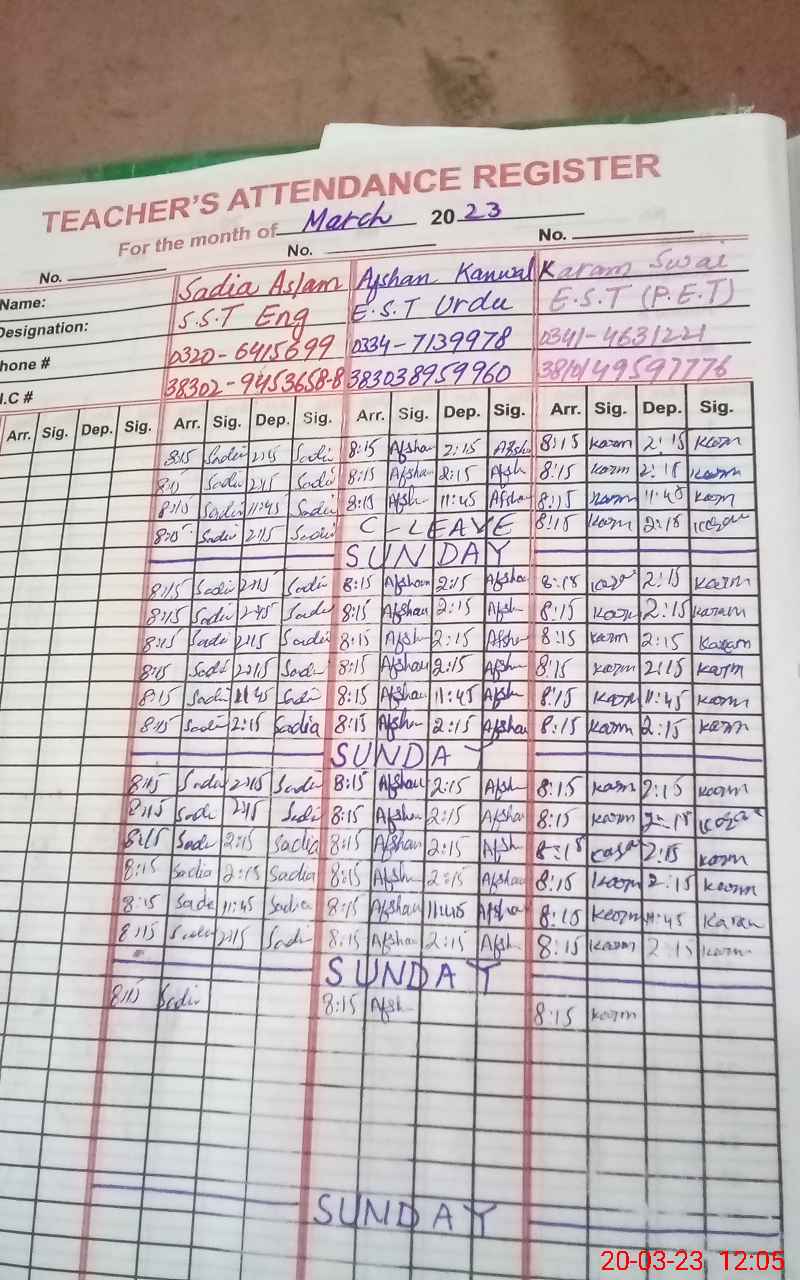 TEACHER'S ATTENDANCE REGISTER
For the month of March 2023
No. No. No.
Name: Sadia Aslam Afshan Kanwal Karam
Designation: S.S.T Eng E.S.T Urdu E.S.T (P.E.T)
hone # 0320-6415699 0334-7139978 0341-4631221
I.C # 38302-9453658-8 383038959960
Arr. Sig. Dep. Sig. Arr. Sig. Dep. Sig. Arr. Sig. Dep. Sig. Arr. Sig. Dep. Sig.
8:15 Sadia 2:15 Sadi 8:15 Afshan 2:15 Afsh 8:15 karm 2:15 karm
8:15 Sadi 2:15 Sadi 8:15 Afshan 2:15 Afsh 8:15 karm 2:15 karm
8:15 Sadi 11:45 Sadi 8:15 Afsh 11:45 Afsha 8:15 karm 11:45 karm
8:15 Sadi 2:15 Sadi C-LEAVE 8:15 karm 2:15
SUNDAY
8:15 Sadi 2:15 Sadi 8:15 Afshan 2:15 Afsha 8:15 2:15 karm
8:15 Sadi 2:15 Sadi 8:15 Afshan 2:15 Afsh 8:15 karm 2:15 karam
8:15 Sadi 2:15 Sadi 8:15 Afsh 2:15 Afsh 8:15 karm 2:15 Karam
8:15 Sadi 2:15 Sadi 8:15 Afshan 2:15 Afsh 8:15 karm 2:15 karm
8:15 Sadi 11:45 Sadi 8:15 Afshan 11:45 Afsh 8:15 karm 11:45 karm
8:15 Sadi 2:15 Sadia 8:15 Afsh 2:15 Afshan 8:15 karm 2:15 karm
SUNDAY
8:15 Sadi 2:15 Sadi 8:15 Afshan 2:15 Afsh 8:15 karm 2:15 karm
8:15 Sadi 2:15 Sadi 8:15 Afshan 2:15 Afsha 8:15 karm 2:15
8:15 Sadi 2:15 Sadia 8:15 Afshan 2:15 Afsh 8:15 2:15 karm
8:15 Sadia 2:15 Sadia 8:15 Afsh 2:15 Afshan 8:15 karm 2:15 karm
8:15 Sade 11:45 Sadia 8:15 Afshan 11:45 Afsha 8:15 karm 11:45 Karam
8:15 Sadi 2:15 Sadi 8:15 Afshan 2:15 Afsh 8:15 karm 2:15 karm
SUNDAY
8:15 Sadi 8:15 Afsh 8:15 karm
SUNDAY
20-03-23 12:05